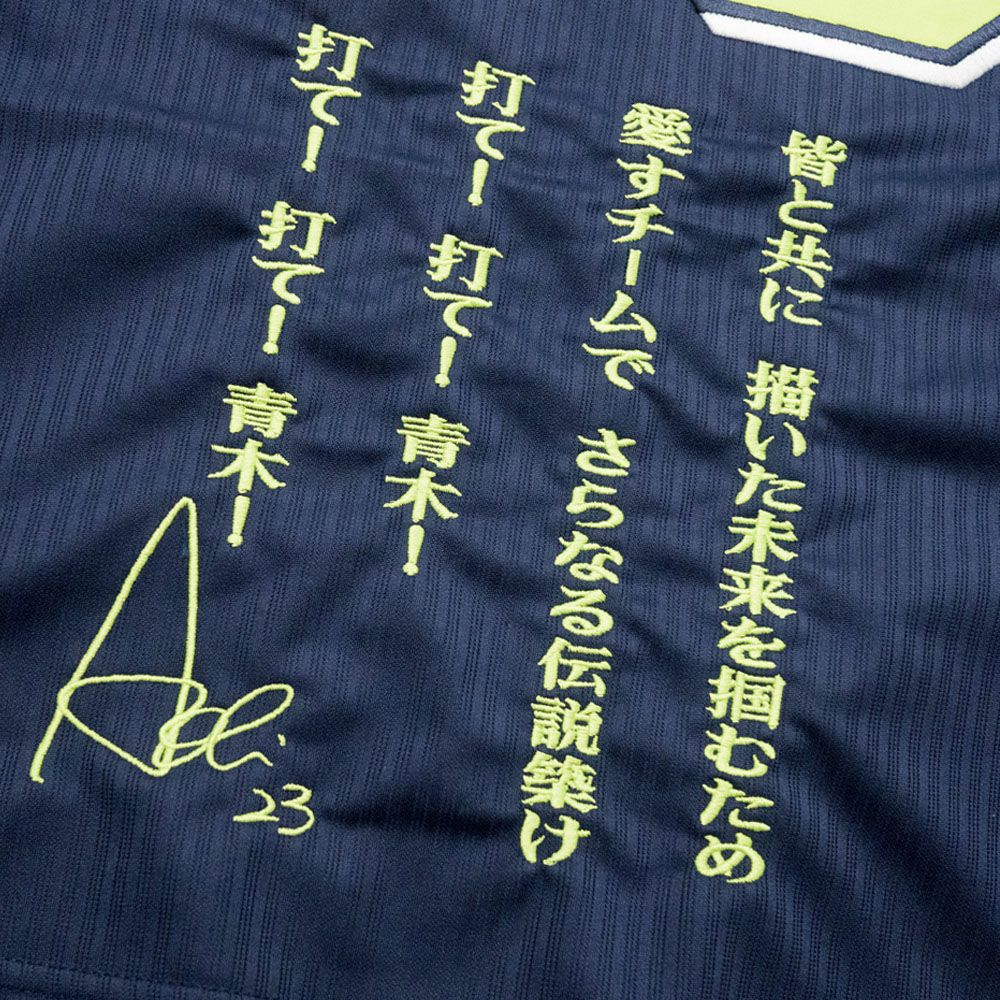 皆と共に　描いた未来を掴むため
愛すチームで　さらなる伝説築け
打て！　打て！　青木！
打て！　打て！　青木！
Aoki
23